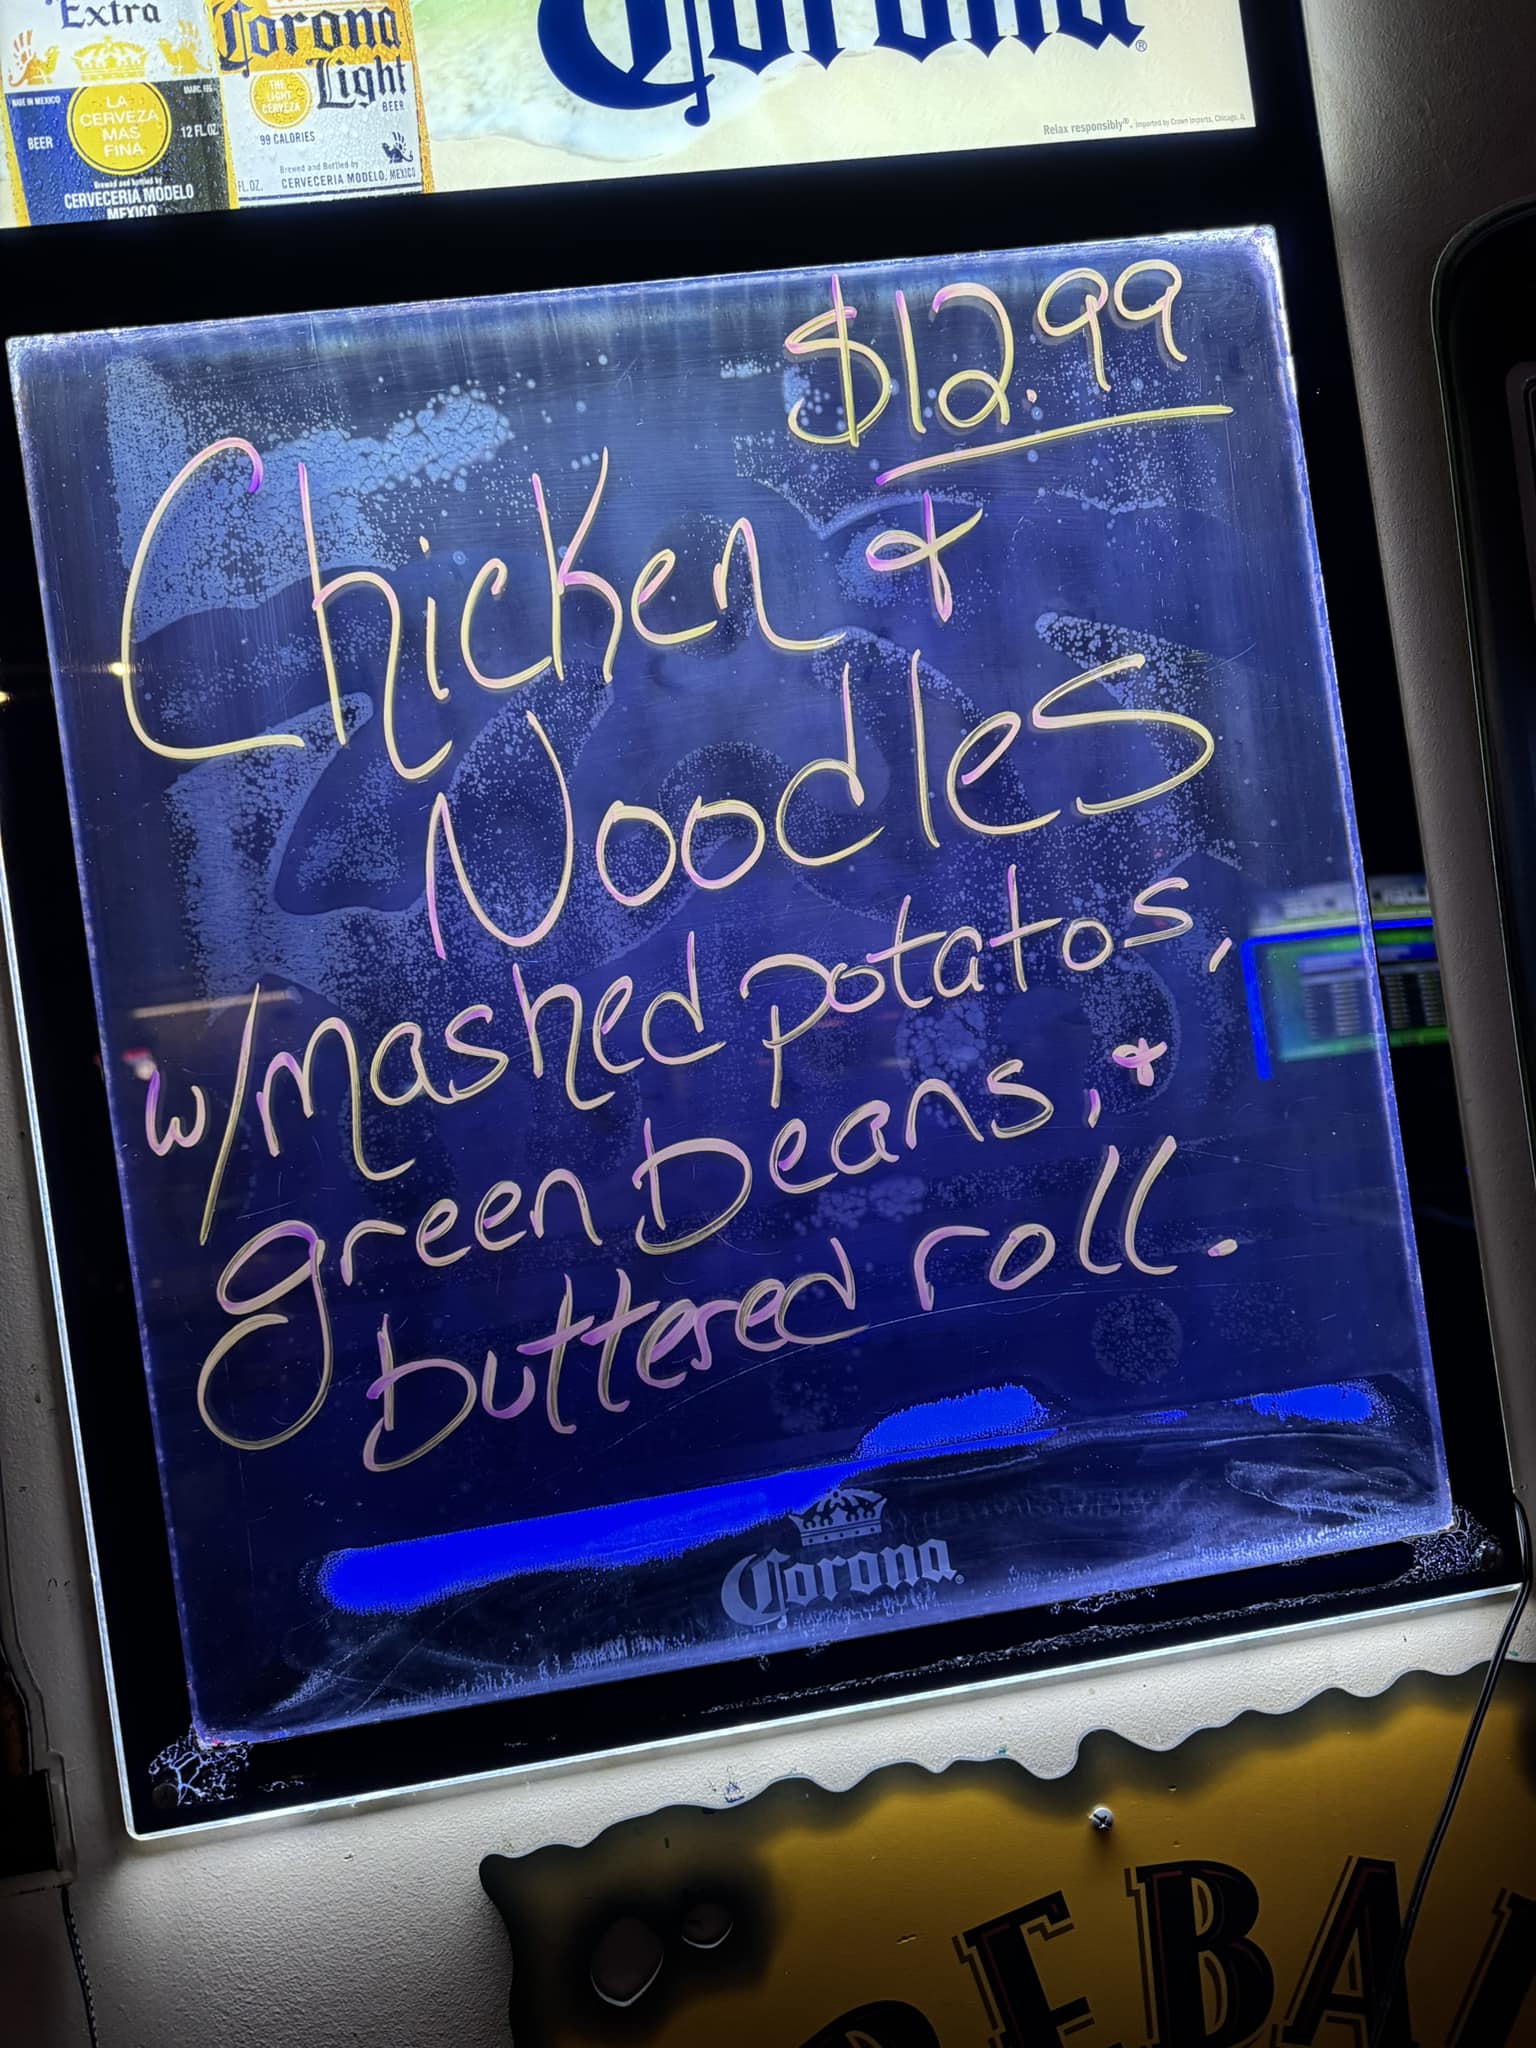 Extra
LA
CERVEZA
MAS
FINA
MADE IN MEXICO
BEER
12 FL.OZ.
Brewed and bottled by
CERVECERIA MODELO
MEXICO
Corona
Light
BEER
THE
LIGHT
CERVEZA
99 CALORIES
Brewed and Bottled by
FL.OZ. CERVECERIA MODELO, MEXICO
Corona®
Relax responsibly®. Imported by Crown Imports, Chicago, IL
$12.99
Chicken &
Noodles
w/mashed potatos,
green beans, &
buttered roll.
Corona
EBA